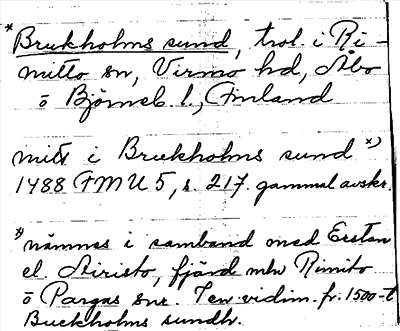 *Brukholms sund, trol. i Ri-
mitto sn, Virmo hd, Åbo
o Björneb. l., Finland
mitt i Brukholms sund x)
1488 FMU 5, s. 217. gammal avskr.
x) nämnes i samband med Erstan
el. Airisto, fjärd mln Rimito
o Pargas snr. I en vidim. fr. 1500-t
Buckholms sundh.